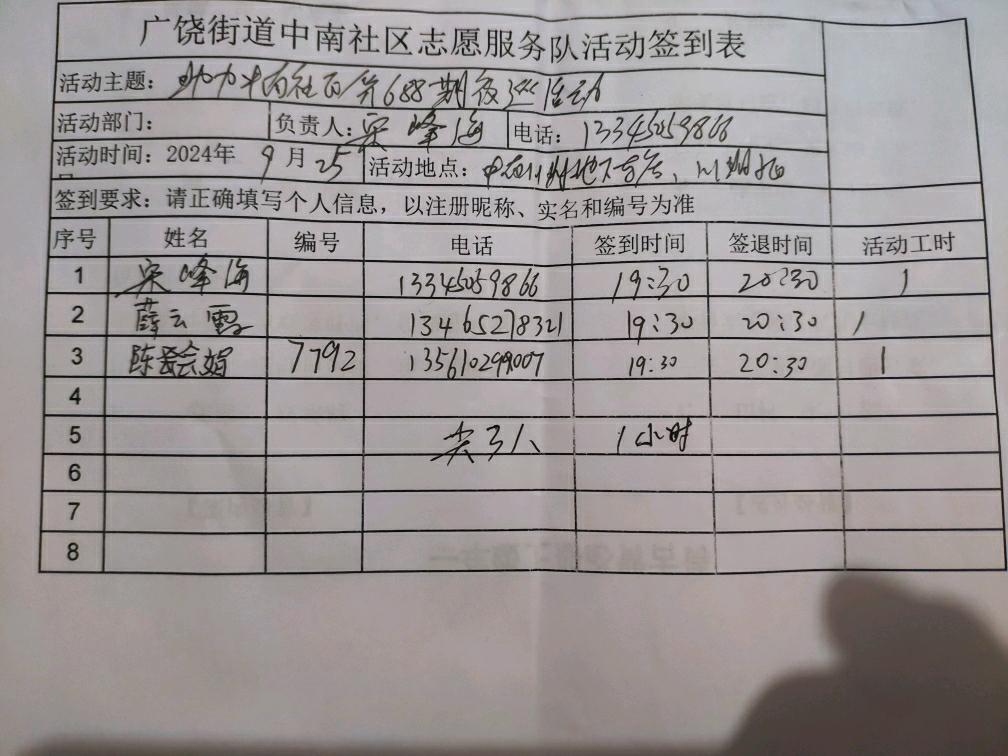 广饶街道中南社区志愿服务队活动签到表
活动主题：助力中南社区第688期夜巡活动
活动部门： 负责人：宋峰海 电话：13345059866
活动时间：2024年9月25 活动地点：
签到要求：请正确填写个人信息，以注册昵称、实名和编号为准
序号 姓名 编号 电话 签到时间 签退时间 活动工时
1 宋峰海 13345059866 19:30 20:30 1
2 薛云霞 13465278321 19:30 20:30 1
3 陈会娟 7792 19:30 20:30 1
4
5 共3人 1小时
6
7
8